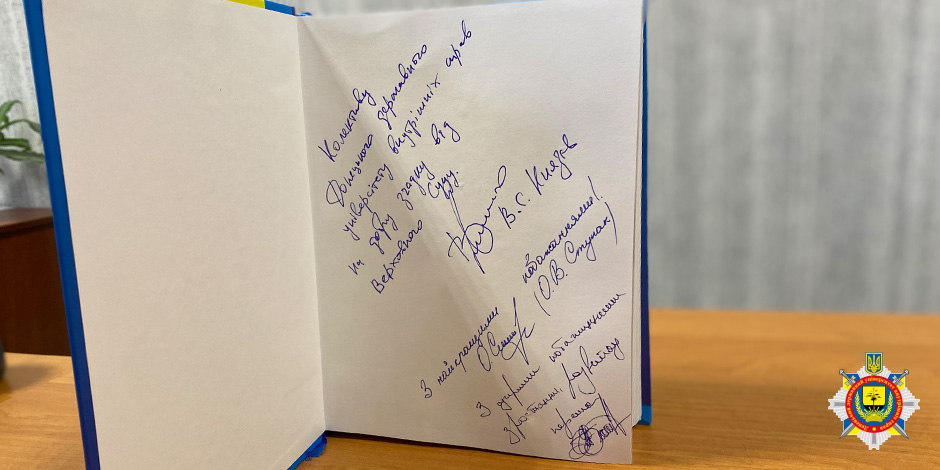 Колективу
Донецького державного
університету внутрішніх справ
на добру згадку від
Верховного Суду.
В.С. Князєв
З найкращими побажаннями!
(О.В. Ступак)
З щирими побажаннями
зростання, розвитку